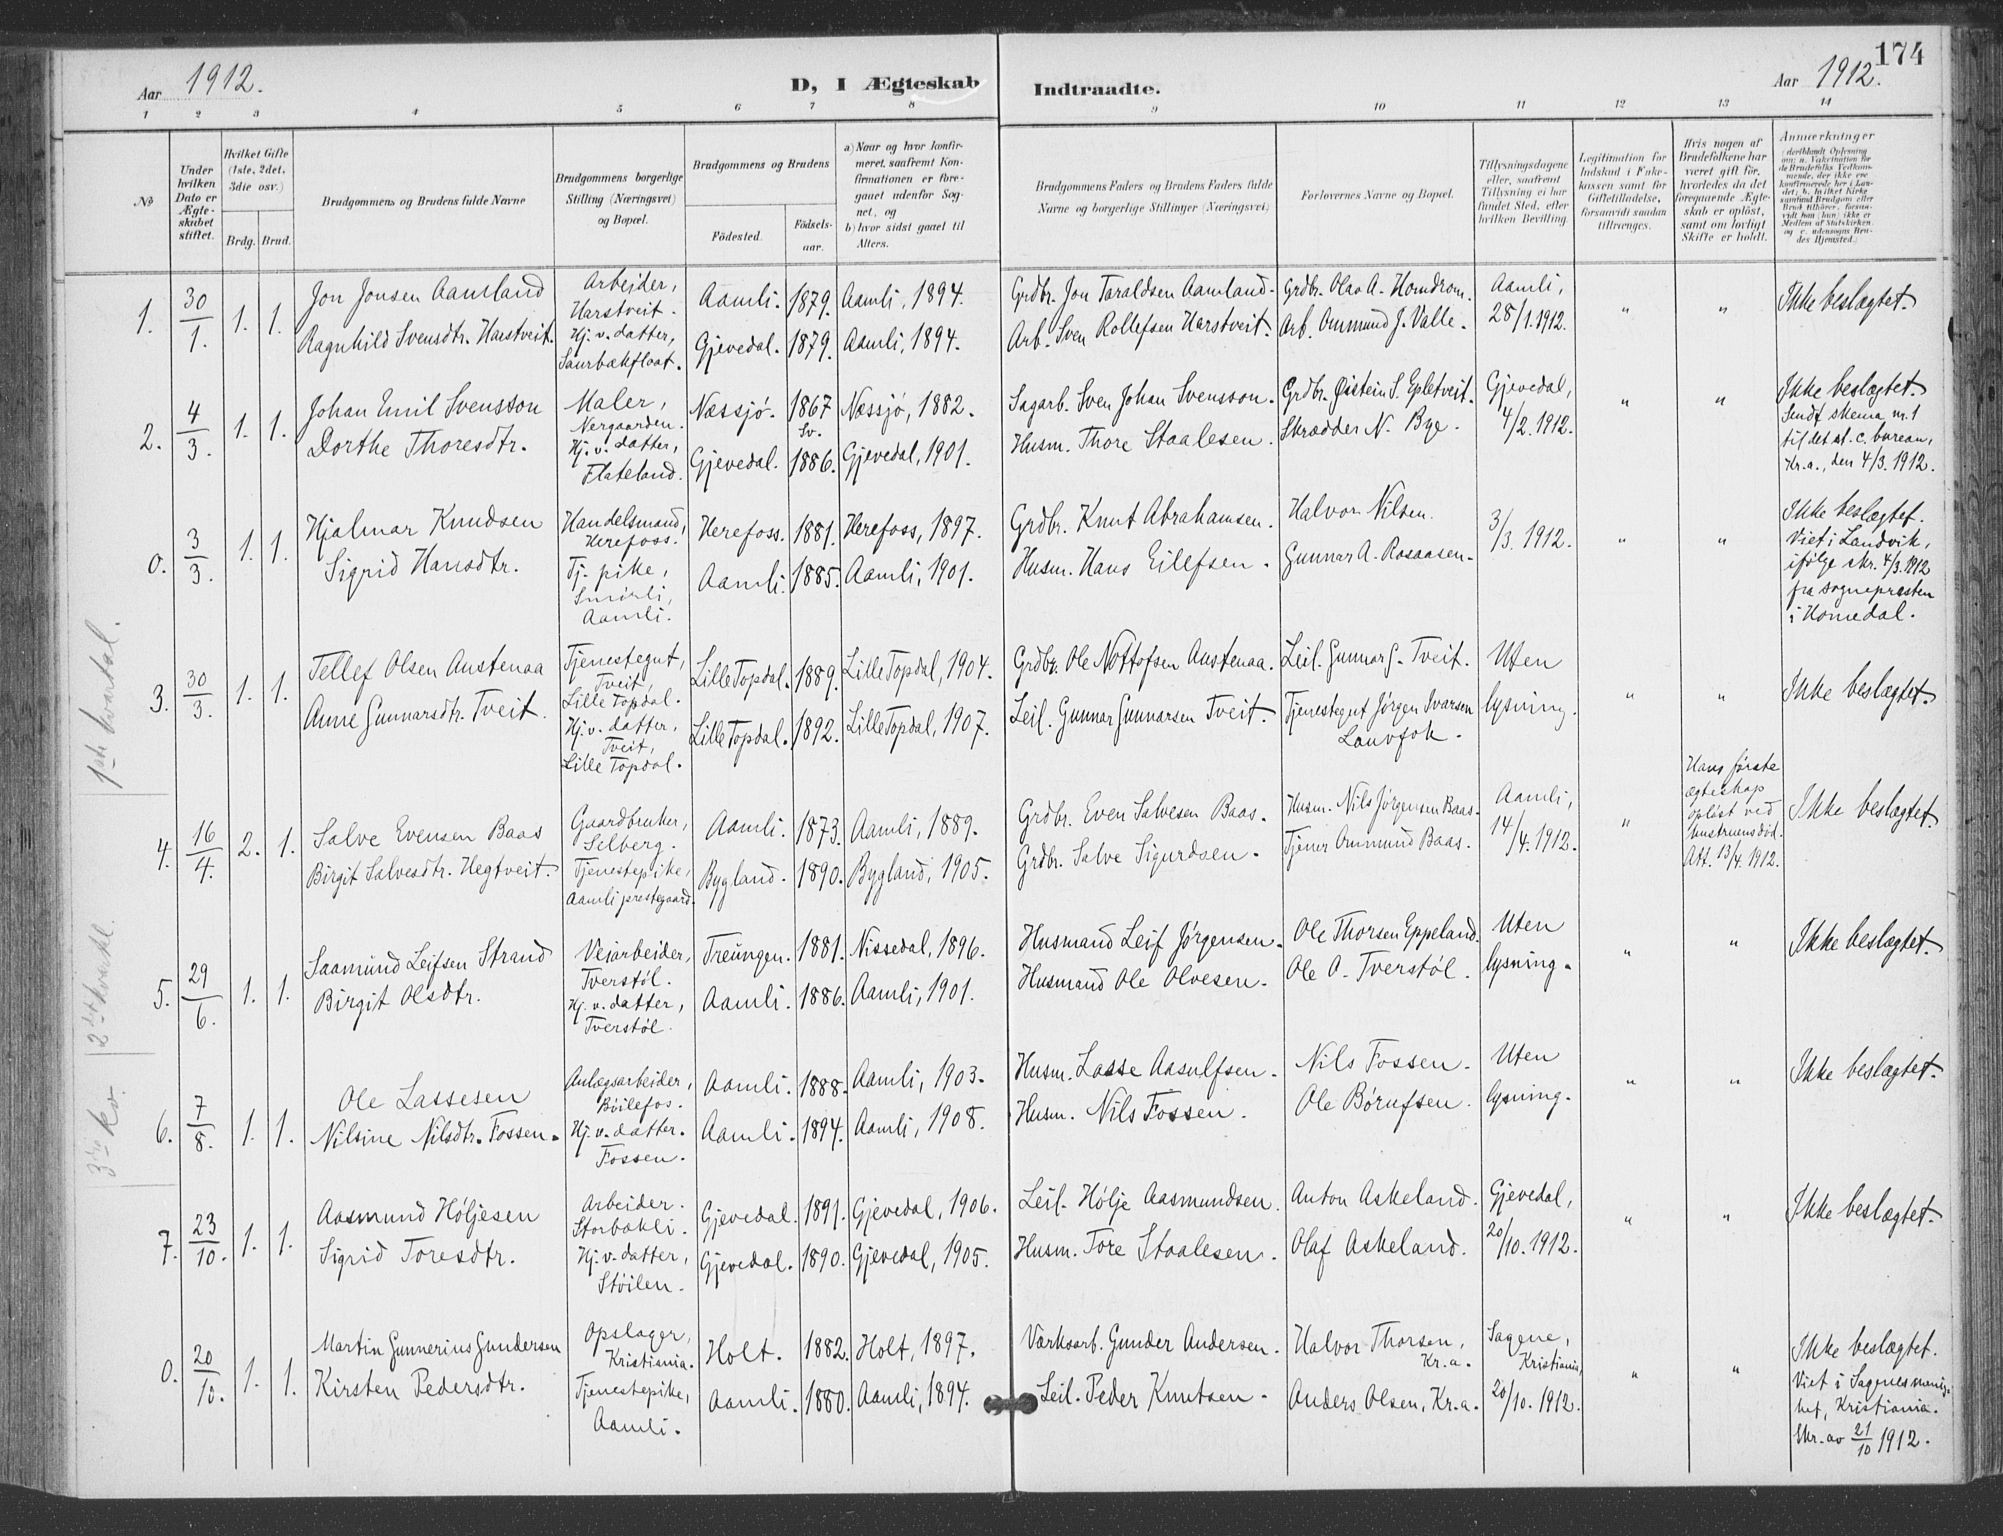 174
Aar 1912.
D, I Ægteskab Indtraadte.
Aar 1912.
1 2 3 4 5 6 7 8 9 10 11 12 13 14
No
Under hvilken Dato er Ægteskabet stiftet.
Hvilket Gifte (1ste, 2det, 3die osv.)
Brdg. Brud.
Brudgommens og Brudens fulde Navne
Brudgommens borgerlige Stilling (Næringsvei) og Bopæl.
Brudgommens og Brudens
Fødested.
Fødsels-aar.
a) Naar og hvor konfirmeret, saafremt Konfirmationen er foregaaet udenfor Sognet, og
b) hvor sidst gaaet til Alters.
Brudgommens Faders og Brudens Faders fulde Navne og borgerlige Stillinger (Næringsvei)
Forlovernes Navne og Bopæl.
Tillysningsdagene eller, saafremt Tillysning ei har fundet Sted, efter hvilken Bevilling.
Legitimation for Indskud i Enkekassen samt for Giftetilladelse, forsaavidt saadan tiltrænges.
Hvis nogen af Brudefolkene har været gift før, hvorledes da det foregaaende Ægteskab er opløst, samt om lovligt Skifte er holdt.
Anmærkninger
(deriblandt Oplysning om: a. Vakcination for de Brudefolks Vedkommende, der ikke ere konfirmerede her i Landet; b. hvilket Kirkesamfund Brudgom eller Brud tilhører, forsaavidt han (hun) ikke er Medlem af Statskirken, og c. udensogns Brudes Hjemsted.)
1. 30/1. 1. 1.
Jon Jonsen Aamland
Ragnhild Svensdtr. Harstveit.
Arbeider,
Harstveit.
Hj.v. datter,
Saurbækfloat.
Aamli. 1879. Aamli, 1894.
Gjevedal. 1879. Aamli, 1894.
Grdbr. Jon Taraldsen Aamland.
Arb. Sven Rollefsen Harstveit.
Grdbr. Olav A. Homdrom.
Arb. Ommund J. Valle.
Aamli,
28/1. 1912.
" "
Ikke beslægtet.
2. 4/3. 1. 1.
Johan Emil Svensson
Dorthe Thoresdtr.
Maler,
Nergaarden.
Hj.v. datter,
Flateland.
Næssjø. 1867 Sv. Næssjø, 1882.
Gjevedal. 1886. Gjevedal, 1901.
Sagarb. Sven Johan Svensson.
Husm. Thore Staalesen.
Grdbr. Øistein S. Epletveit.
Skrædder N. Bye.
Gjevedal,
4/2. 1912.
" "
Ikke beslægtet.
Sendt skema nr. 1
til det st. c. bureau,
Kr.a., den 4/3. 1912.
0. 3/3. 1. 1.
Hjalmar Knudsen
Sigrid Hansdtr.
Handelsmand,
Herefoss.
Tj. pike,
Smørli,
Aamli.
Herefoss. 1881. Herefoss, 1897.
Aamli. 1885. Aamli, 1901.
Grdbr. Knut Abrahamsen.
Husm. Hans Eilefsen.
Halvor Nilsen.
Gunnar A. Rosaasen.
3/3. 1912.
" "
Ikke beslægtet.
Viet i Landvik,
ifølge skr. 4/3. 1912
fra sognepresten
i Homedal.
3. 30/3. 1. 1.
Tellef Olsen Austenaa
Anne Gunnarsdtr. Tveit.
Tjenestegut,
Tveit,
Lille Topdal.
Hj.v. datter,
Tveit,
Lille Topdal.
Lille Topdal. 1889. Lille Topdal, 1904.
Lille Topdal. 1892. Lille Topdal, 1907.
Grdbr. Ole Nottofsen Austenaa.
Leil. Gunnar Gunnarsen Tveit.
Leil. Gunnar G. Tveit.
Tjenestegut Jørgen Ivarsen
Lauvfok.
Uten
lysning.
" "
Ikke beslægtet.
1ste kvartal.
4. 16/4. 2. 1.
Salve Evensen Baas
Birgit Salvesdtr. Hegtveit.
Gaardbruker,
Selberg.
Tjenestepike,
Aamli prestegaard.
Aamli. 1873. Aamli, 1889.
Bygland. 1890. Bygland, 1905.
Grdbr. Even Salvesen Baas.
Grdbr. Salve Sigurdsen.
Husm. Nils Jørgensen Baas.
Tjener Ommund Baas.
Aamli,
14/4. 1912.
"
Hans første
ægteskap
opløst ved
hustruens død.
Att. 13/4. 1912.
Ikke beslægtet.
5. 29/6. 1. 1.
Saamund Leifsen Strand
Birgit Olsdtr.
Veiarbeider,
Tverstøl.
Hj.v. datter,
Tverstøl.
Treungen. 1881. Nissedal, 1896.
Aamli. 1886. Aamli, 1901.
Husmand Leif Jørgensen.
Husmand Ole Olvesen.
Ole Thorsen Eppeland.
Ole A. Tverstøl.
Uten
lysning.
" "
Ikke beslægtet.
2det kvartl.
6. 7/8. 1. 1.
Ole Lassesen
Nilsine Nilsdtr. Fossen.
Anlægsarbeider,
Bøilefos.
Hj.v. datter.
Fossen.
Aamli. 1888. Aamli, 1903.
Aamli. 1894. Aamli, 1908.
Husm. Lasse Aasulfsen.
Husm. Nils Fossen.
Nils Fossen.
Ole Børufsen.
Uten
lysning.
" "
Ikke beslægtet.
3dje kv.
7. 23/10. 1. 1.
Aasmund Høljesen
Sigrid Toresdtr.
Arbeider.
Storbakli.
Hj.v. datter,
Støilen.
Gjevedal. 1891. Gjevedal, 1906.
Gjevedal. 1890. Gjevedal, 1905.
Leil. Hølje Aasmundsen.
Husm. Tore Staalesen.
Anton Askeland.
Olaf Askeland.
Gjevedal,
20/10. 1912.
" "
Ikke beslægtet.
0. 20/10. 1. 1.
Martin Gunnerius Gundersen
Kirsten Pedersdtr.
Opslager,
Kristiania.
Tjenestepike,
Aamli.
Holt. 1882. Holt, 1897.
Aamli. 1880. Aamli, 1894.
Værksarb. Gunder Andersen.
Leil. Peder Knutsen.
Halvor Thorsen,
Kr.a.
Anders Olsen, Kr.a.
Sagene,
Kristiania,
20/10. 1912.
" "
Ikke beslægtet.
Viet i Sagenes menig-
het, Kristiania.
Skr. av 21/10 1912.